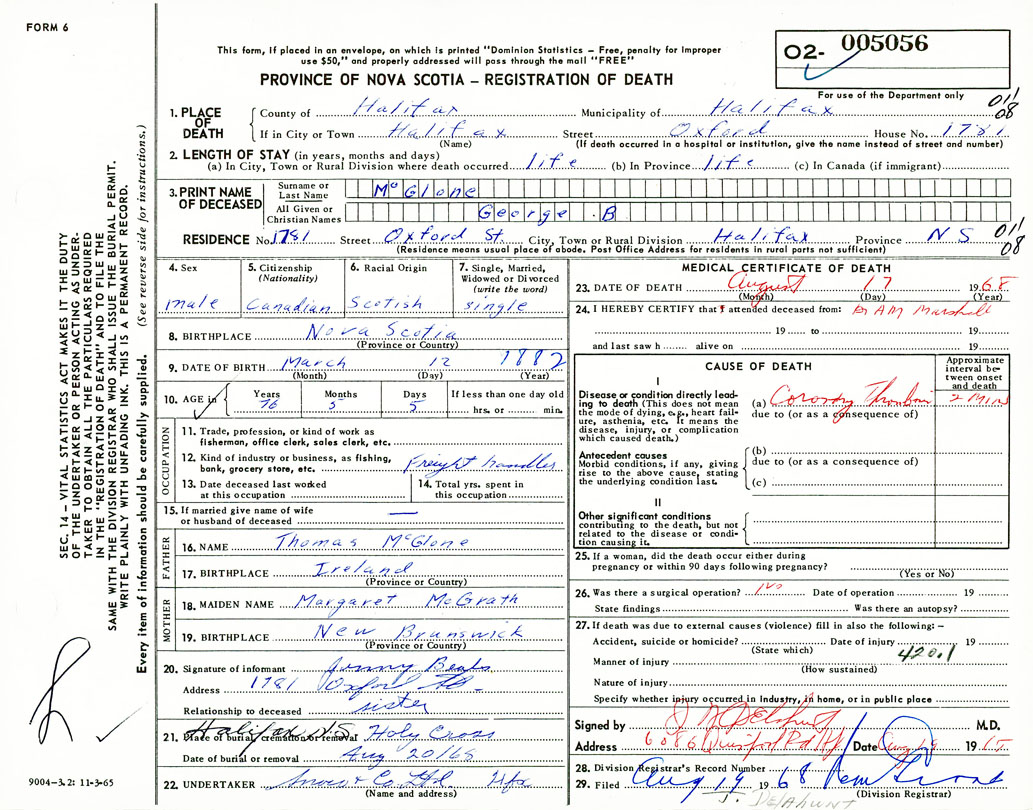 FORM 6
This form, if placed in an envelope, on which is printed "Dominion Statistics – Free, penalty for improper
use $50," and properly addressed will pass through the mail "FREE"
PROVINCE OF NOVA SCOTIA – REGISTRATION OF DEATH
02- 005056
For use of the Department only
011
08
1. PLACE OF DEATH
County of Halifax Municipality of Halifax
If in City or Town Halifax Street Oxford House No. 1781
(Name) (If death occurred in a hospital or institution, give the name instead of street and number)
2. LENGTH OF STAY (in years, months and days)
(a) In City, Town or Rural Division where death occurred life (b) In Province life (c) In Canada (if immigrant)
3. PRINT NAME OF DECEASED
Surname or Last Name McGlone
All Given or Christian Names George B
RESIDENCE No. 1781 Street Oxford St. City, Town or Rural Division Halifax Province NS
011
08
(Residence means usual place of abode. Post Office Address for residents in rural parts not sufficient)
4. Sex
male
5. Citizenship
(Nationality)
Canadian
6. Racial Origin
Scotish
7. Single, Married,
Widowed or Divorced
(write the word)
single
8. BIRTHPLACE Nova Scotia
(Province or Country)
9. DATE OF BIRTH March 12 1882
(Month) (Day) (Year)
10. AGE in
Years Months Days If less than one day old
76 5 5 hrs. or min.
OCCUPATION
11. Trade, profession, or kind of work as
fisherman, office clerk, sales clerk, etc.
12. Kind of industry or business, as fishing,
bank, grocery store, etc. Freight handler
13. Date deceased last worked
at this occupation
14. Total yrs. spent in
this occupation
15. If married give name of wife
or husband of deceased —
FATHER
16. NAME Thomas McGlone
17. BIRTHPLACE Ireland
(Province or Country)
MOTHER
18. MAIDEN NAME Margaret McGrath
19. BIRTHPLACE New Brunswick
(Province or Country)
20. Signature of informant
Address 1781 Oxford St.
Relationship to deceased sister
21. Place of burial, cremation or removal Halifax N.S Holy Cross
Date of burial or removal Aug 20/68
22. UNDERTAKER Snow & Co. Ltd. Hfx
(Name and address)
MEDICAL CERTIFICATE OF DEATH
23. DATE OF DEATH August 17 1968
(Month) (Day) (Year)
24. I HEREBY CERTIFY that I attended deceased from: Dr AM Marshall
19 to 19
and last saw h alive on 19
CAUSE OF DEATH
Approximate
interval be-
tween onset
and death
I
Disease or condition directly lead-
ing to death (This does not mean
the mode of dying, e.g., heart fail-
ure, asthenia, etc. It means the
disease, injury, or complication
which caused death.)
(a) Coronary Thrombosis 2 MIN
due to (or as a consequence of)
Antecedent causes
Morbid conditions, if any, giving
rise to the above cause, stating
the underlying condition last.
(b)
due to (or as a consequence of)
(c)
II
Other significant conditions
contributing to the death, but not
related to the disease or condi-
tion causing it.
25. If a woman, did the death occur either during
pregnancy or within 90 days following pregnancy?
(Yes or No)
26. Was there a surgical operation? No Date of operation 19
State findings Was there an autopsy?
27. If death was due to external causes (violence) fill in also the following: –
Accident, suicide or homicide? Date of injury 19
(State which)
420.1
Manner of injury
(How sustained)
Nature of injury
Specify whether injury occurred in Industry, in home, or in public place
Signed by M.D.
Address 6086 Date Aug 19 19
28. Division Registrar's Record Number
29. Filed Aug 19 1968
(Division Registrar)
J. DELAHUNT
SEC. 14 – VITAL STATISTICS ACT MAKES IT THE DUTY
OF THE UNDERTAKER OR PERSON ACTING AS UNDER-
TAKER TO OBTAIN ALL THE PARTICULARS REQUIRED
IN THE "REGISTRATION OF DEATH" AND TO FILE THE
SAME WITH THE DIVISION REGISTRAR WHO SHALL ISSUE THE BURIAL PERMIT.
WRITE PLAINLY WITH UNFADING INK. THIS IS A PERMANENT RECORD.
Every item of information should be carefully supplied. (See reverse side for instructions.)
9004–3.2: 11-3-65